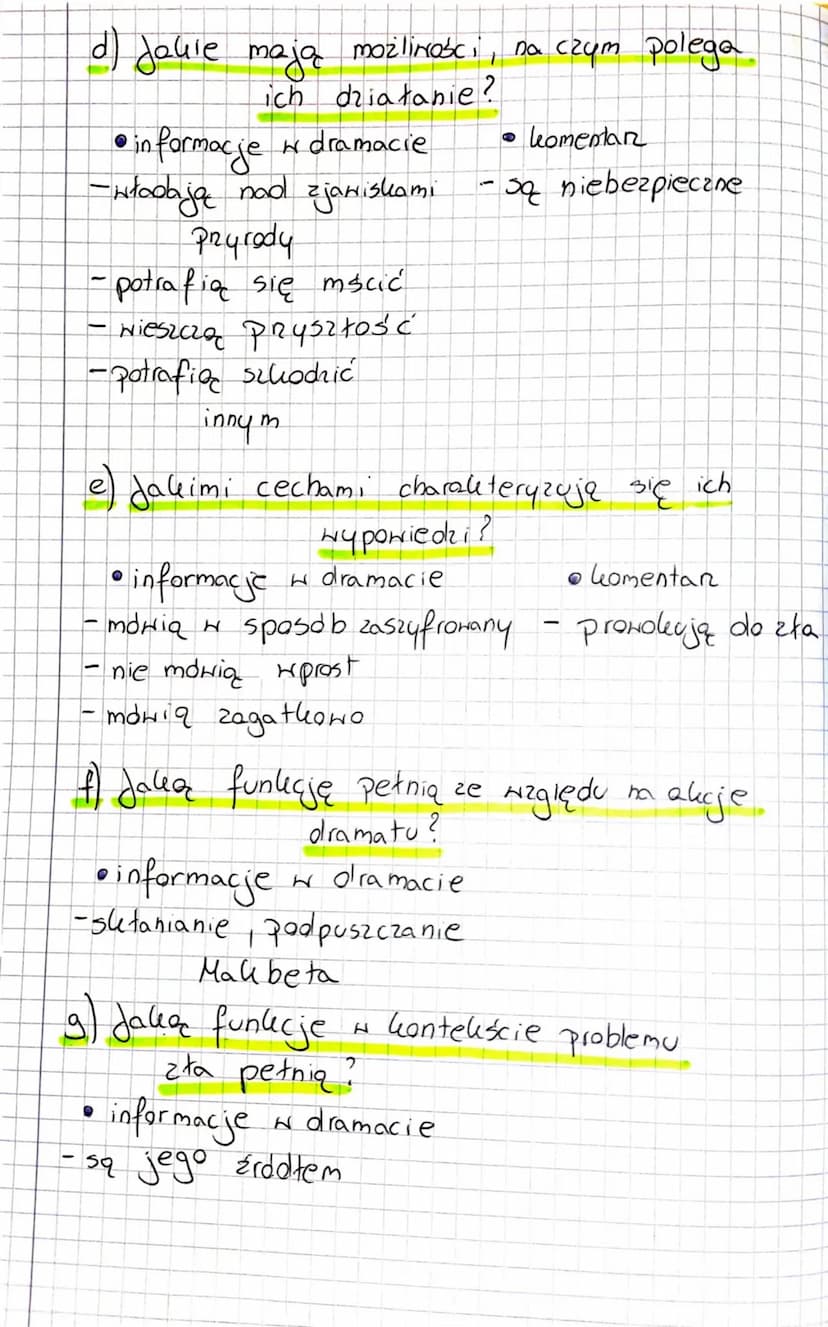 d) Jakie mają możliwości, na czym polega
ich działanie?
• informacje w dramacie • komentarz
- władają nad zjawiskami - są niebezpieczne
przyrody
- potrafią się mścić
- wieszczą przyszłość
- potrafią szkodzić
innym
e) Jakimi cechami charakteryzują się ich
wypowiedzi?
• informacje w dramacie • komentarz
- mówią w sposób zaszyfrowany - prowokują do zła
- nie mówią wprost
- mówią zagatkowo
f) Jaką funkcję pełnią ze względu na akcje
dramatu?
• informacje w dramacie
- skłanianie, podpuszczanie
Makbeta
g) Jaką funkcje w kontekście problemu
zła pełnią?
• informacje w dramacie
- są jego źródłem